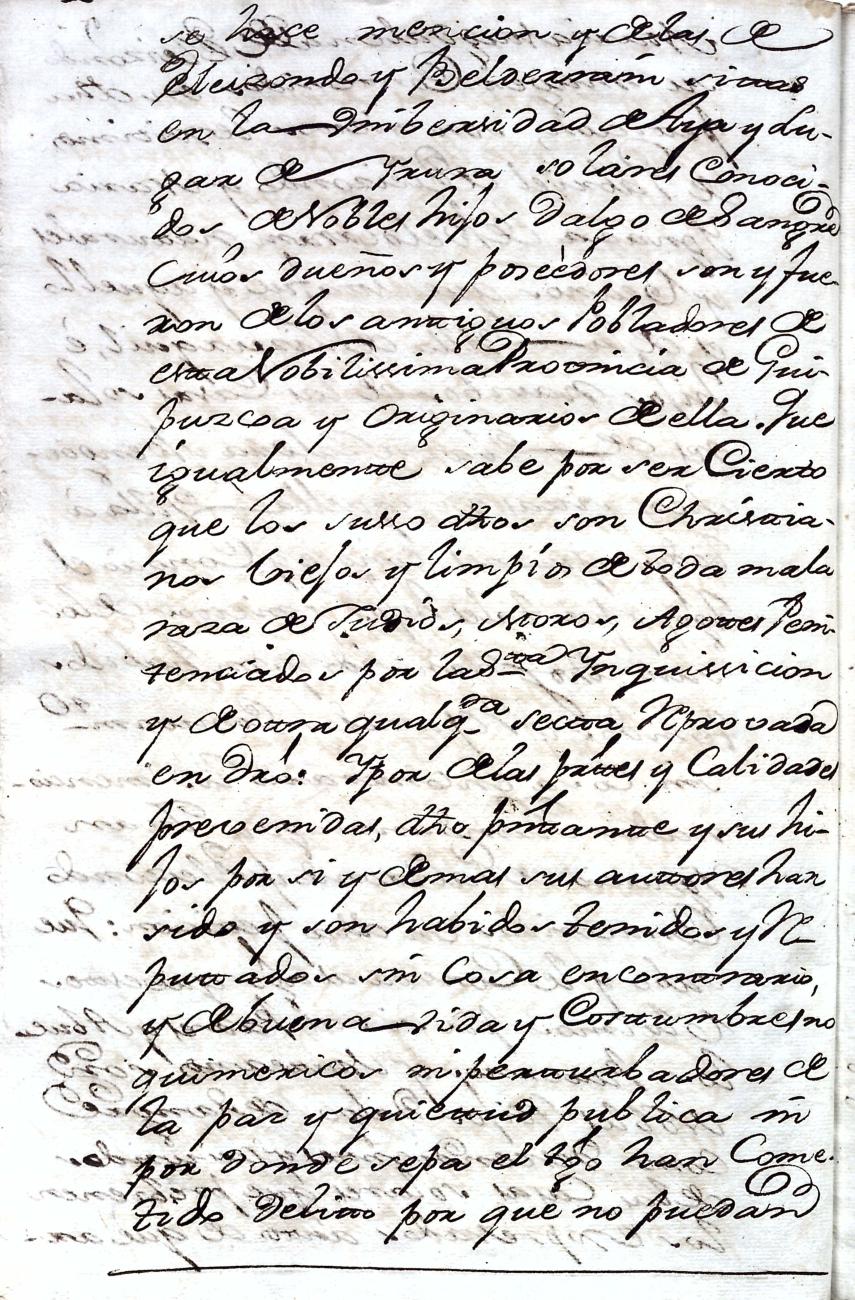 se hace mencion y de las de
Eleizondo y Belderrain sittas
en la Unibersidad de Aya y Lu-
gar de Yrura solares Conoci-
dos de Nobles hijos Dalgo de Sangre
Cuios dueños y poseedores son y fue-
ron de los antiguos Pobladores de
esta Nobilissima Provincia de Gui-
puzcoa y Originarios de ella. Que
igualmente sabe por ser Cierto
que los susso dhos son Christia-
nos Viejos y limpios de toda mala
raza de Judios, Moros, Agotes Peni-
tenciados por la Sta Ynquissicion
y de otra qualqda secta Reprovada
en Dro: Y por de las prttes y Calidades
prevenidas, dho pnttante y sus hi-
jos por si y demas sus auttores han
sido y son habidos tenidos y Re-
puttados sin Cosa en conttrario,
y de buena vida y Costtumbres no
quimericos ni pertturbadores de
la paz y quiettud publica ni
por donde sepa el tgo han Come-
tido delitto por que no puedan